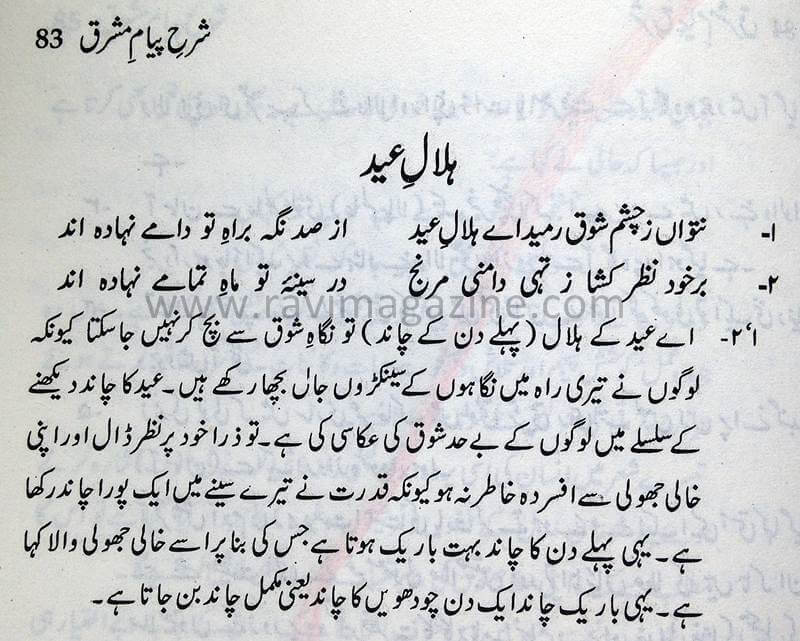 شرحِ پیامِ مشرق 83
ہلالِ عید
۱- نتواں ز چشمِ شوق رمید اے ہلالِ عید از صد نگہ براہِ تو دامے نہادہ اند
۲- بر خود نظر کشا ز تہی دامنی مرنج در سینۂ تو ماہِ تمامے نہادہ اند
www.ravimagazine.com
۱'۲- اے عید کے ہلال (پہلے دن کے چاند) تو نگاہِ شوق سے بچ کر نہیں جا سکتا کیونکہ
لوگوں نے تیری راہ میں نگاہوں کے سینکڑوں جال بچھا رکھے ہیں۔ عید کا چاند دیکھنے
کے سلسلے میں لوگوں کے بے حد شوق کی عکاسی کی ہے۔ تو ذرا خود پر نظر ڈال اور اپنی
خالی جھولی سے افسردہ خاطر نہ ہو کیونکہ قدرت نے تیرے سینے میں ایک پورا چاند رکھا
ہے۔ یہی پہلے دن کا چاند بہت باریک ہوتا ہے جس کی بنا پر اسے خالی جھولی والا کہا
ہے۔ یہی باریک چاند ایک دن چودھویں کا چاند یعنی مکمل چاند بن جاتا ہے۔